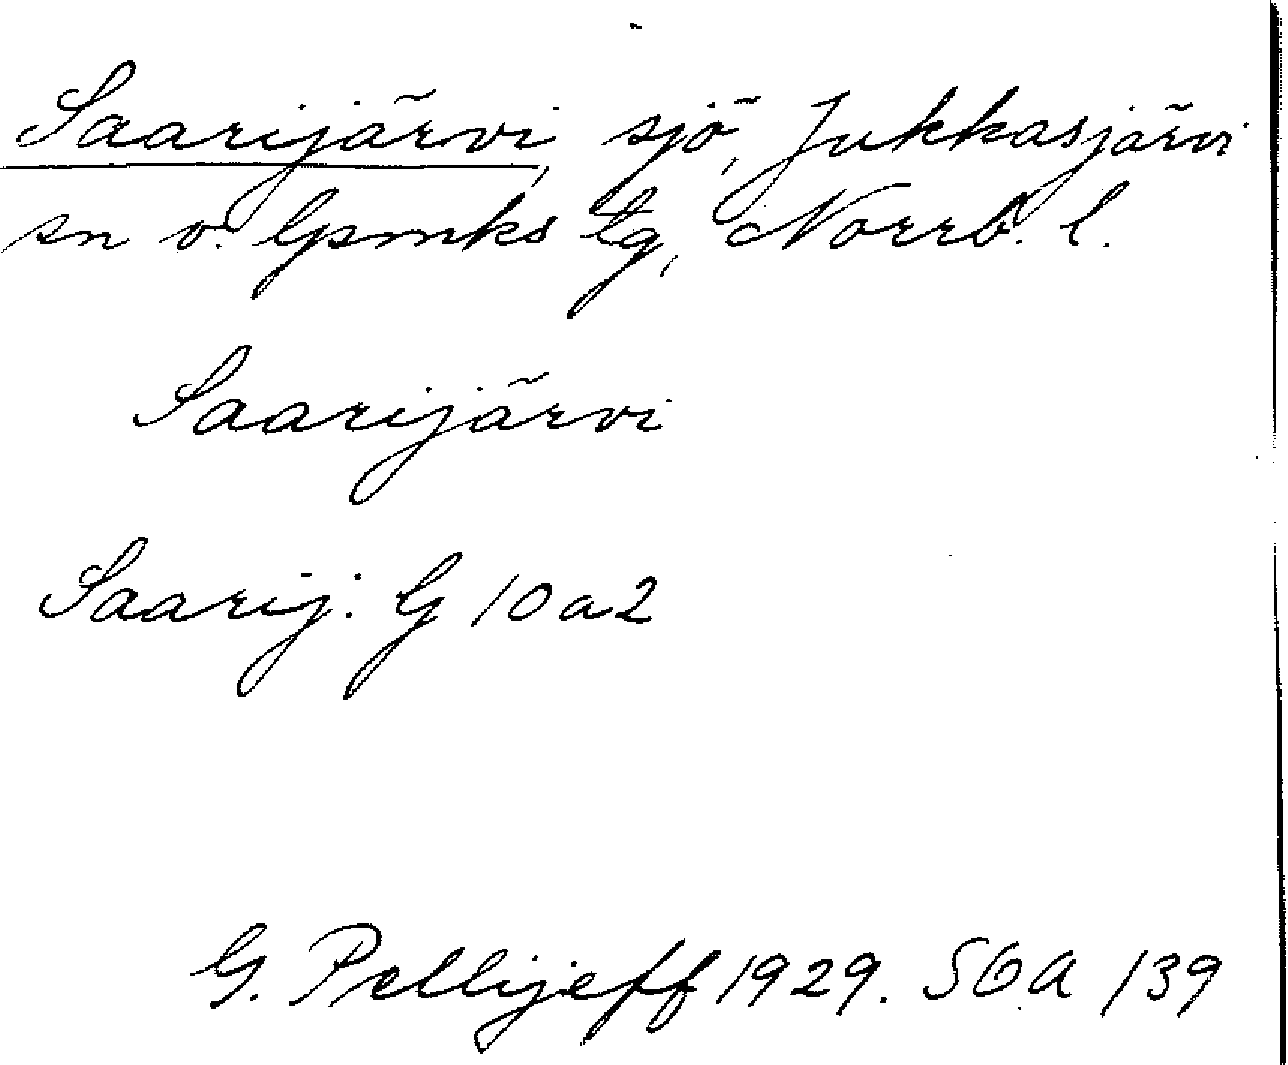 Saarijärvi, sjö, Jukkasjärvi
sn o. lpmks tg, Norrb. l.
Saarijärvi
Saarij: G 10a2
G. Pellijeff 1929. SOA 139